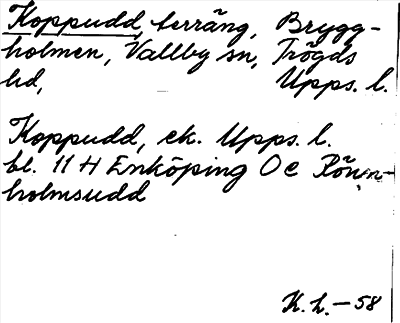 Koppudd, terräng, Brygg-
holmen, Vallby sn, Trögds
hd, Upps. l.
Koppudd, ek. Upps. l.
bl. 11 H Enköping O c Rönn-
holmsudd
K. h. – 58